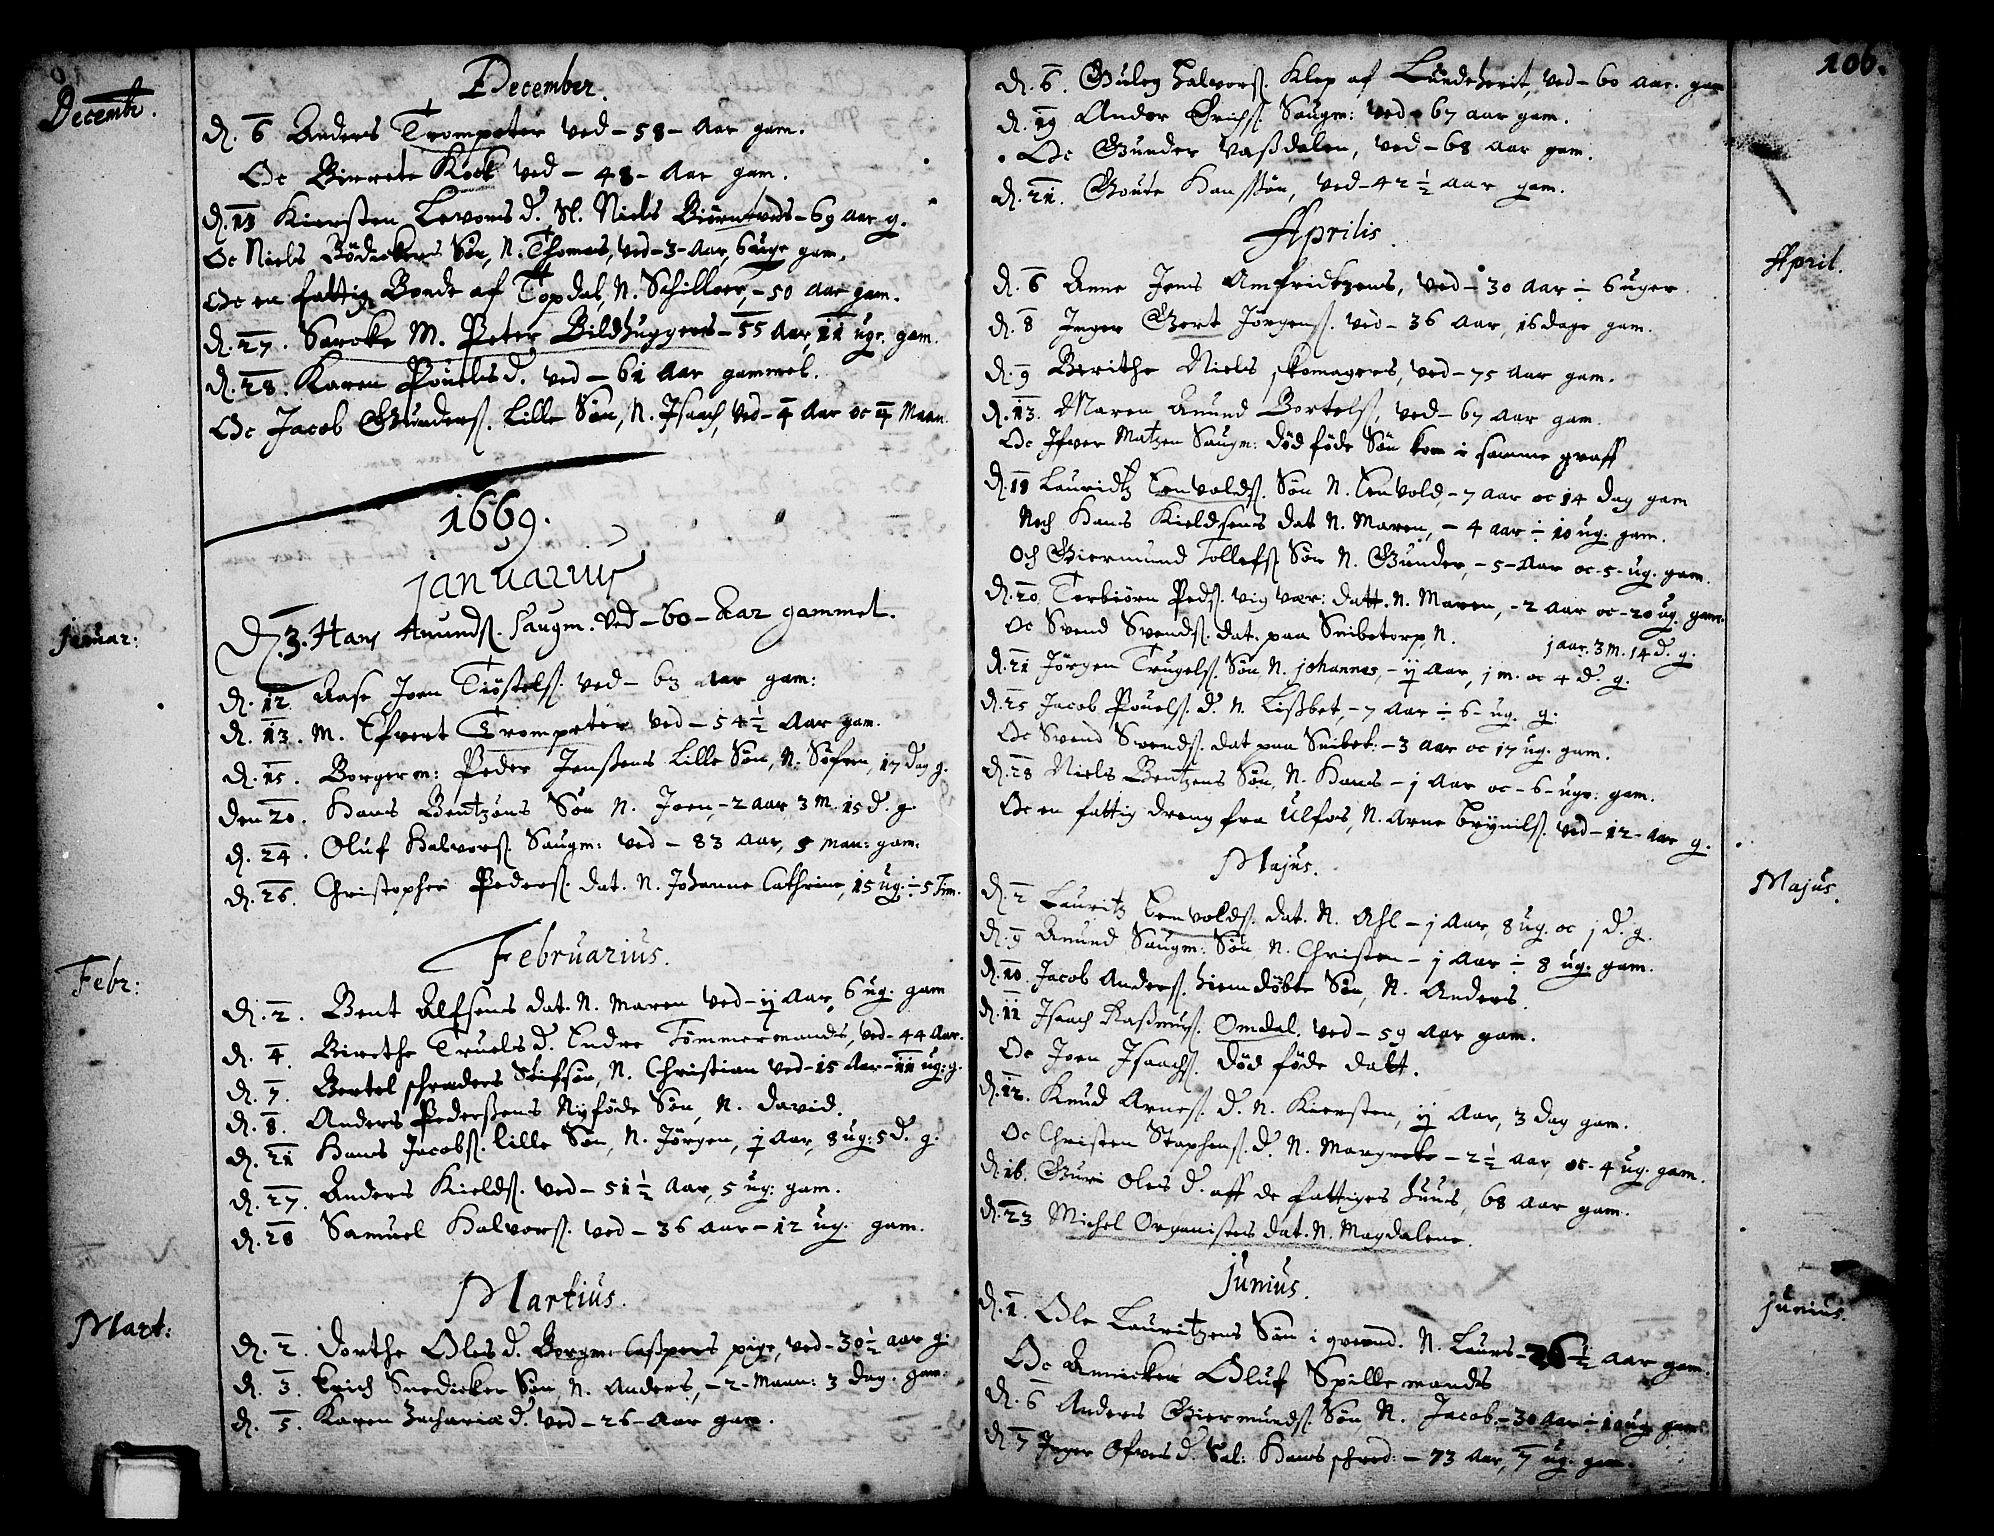 Decemb.
December.
d. 6 Anders Trompeter ved - 58 - Aar gam.
Oc Birrete Kock ved - 48 - Aar gam.
d. 13 Kiersten Levoris d. Sl. Niels Biørntveds - 69 Aar g.
Oc Niels Bødickers Søn, N. Thomas, ved - 3 - Aar 6 uge gam.
Oc en fattig Bonde af Topdal, N. - 50 Aar gam.
d. 27. M. Peter Bildhuggers - 55 Aar, 11 uge. gam.
d. 28. Karen Pouels d. ved - 61 Aar gammel.
Oc Jacob Gunders. Lille Søn, N. Isaach, ved - 4 Aar oc 4 Maan.
1669.
Januarius
Januar:
D. 3. Hans Amunds. Saugm. ved - 60 - Aar gammel.
d. 12. Aase Joen ved - 63 Aar gam:
d. 13. M. Efvert Trompeter ved - 54 ½ Aar gam.
d. 15. Borgerm: Peder Jenssens Lille Søn, N. Søfren, 17 Dag g.
den 20. Hans Bentzøns Søn N. Joen, - 2 aar 3 M. 15 d. g
d. 24. Oluf Halvors. Saugm: ved - 83 Aar, 5 man: gam.
d. 26. Christopher Peders. dat. N. Johanne Cathrine, 15 ug. ÷ 5 Tim.
Februarius.
Febr:
d. 2. Bent Alfsens dat. N. Maren ved - ij Aar, 6 ug. gam
d. 4. Birethe Truels d. Endre Tømmermands, ved - 44 Aar.
d. 7. Bertel schreders Stifsøn, N. Christian ved - 15 Aar - 11 ug: g.
d. 8. Anders Pederssens Nyføde Søn, N. David.
d. 21 Hans Jacobs. lille Søn, N. Jørgen, j Aar, 8 ug: 5 d. g.
d. 27. Anders Kields. ved - 51 ½ Aar, 5 ug: gam.
d. 28 Samuel Halvors. ved - 36 Aar - 12 ug. gam.
Martius.
Mart:
d. 2. Dorthe Oles d. Borgm. Casspers pige, ved - 30 ½ aar g:
d. 3. Erich Snedicker Søn N. Anders, - 2 - Maan: 3 Dag. gam.
d. 5. Karen Zachariæ d. ved - 26 - Aar gam.
106.
d. 6. Halvors. Klep af ved - 60 Aar. gam
d. 19 Ander Erichs. Saugm: ved - 67 aar gam.
Oc Gunder Vassdalen, ved - 68 Aar gam.
d. 21. Goute Hanssøn, ved - 42 ½ Aar gam.
Aprilis.
April.
d. 6 Anne Jens Amfridtzens, ved - 30 Aar ÷ 6 uger
d. 8 Inger Gert Jørgens. ved - 36 Aar, 16 dage gam.
d. 9 Berithe Niels skomagers, ved - 75 Aar gam.
d. 13. Maren Anund Bertels. ved - 67 Aar gam.
Oc Ifver Matzen Saugm: død føde Søn kom i samme graff
d. 18 Lauridtz Tenvolds. Søn N. Tenvold, - 7 Aar oc 14 Dag gam
Noch Hans Kieldsens dat N. Maren, - 4 Aar ÷ 10 ug. gam.
Och Giermund Tollefs. Søn N. Gunder, - 5 - Aar oc - 5 - ug. gam.
d. 20. Torbiørn Peds. vig vær: datt. N. Maren, - 2 Aar oc - 20 ug. gam.
Oc Svend Svends. dat. paa Snibetorp, N. j aar. 3 M. 14 d. g.
d. 21 Jørgen Trugels. Søn N. Johannes, - ij Aar, j m. oc 4 d. g.
d. 25 Jacob Pouels. d. N. Lissbet, - 7 Aar ÷ 6 - ug. g.
Oc Svend Svends. dat paa Snibet: - 3 Aar oc 17 ug. gam.
d. 28 Niels Bentzens Søn, N. Hans - j Aar oc - 6 - uge: gam.
Oc en fattig dreng fra Ulfos, N. Arne Brynils. ved - 12 - Aar g.
Majus.
Majus.
d. 2 Lauritz Tenvolds. dat. N. Ahl - j Aar, 8 ug. oc j d. g.
d. 9 Anund Saugm: Søn N. Christen - j Aar ÷ 8 ug. gam.
d. 10. Jacob Anders. hiemdøbte Søn, N. Anders.
d. 11 Isaach Rassmus. Omdal. ved - 59 Aar gam.
Oc Joen Isaachs. død føde datt.
d. 12. Knud Arnes. d. N. Kiersten, ij Aar, 3 Dag gam.
Oc Christen Staphens. d. N. Margrete - 2 ½ Aar, oc - 4 ug. gam.
d. 16. Guri Oles d. aff de fattiges huus, 68 Aar gam.
d. 23 Michel Organistes dat. N. Magdalene.
Junius.
junius.
d. 1. Ole Lauritzens Søn i N. Laurs - 26 ½ Aar gam.
Oc Annicken Oluf Spillemands
d. 6 Anders Giermunds. Søn, N. Jacob. - 30 Aar ÷ 10 ug gam
d. 7 Inger Ofves d. Sal: Hans schred: - 73 Aar, 7 ug. gam.